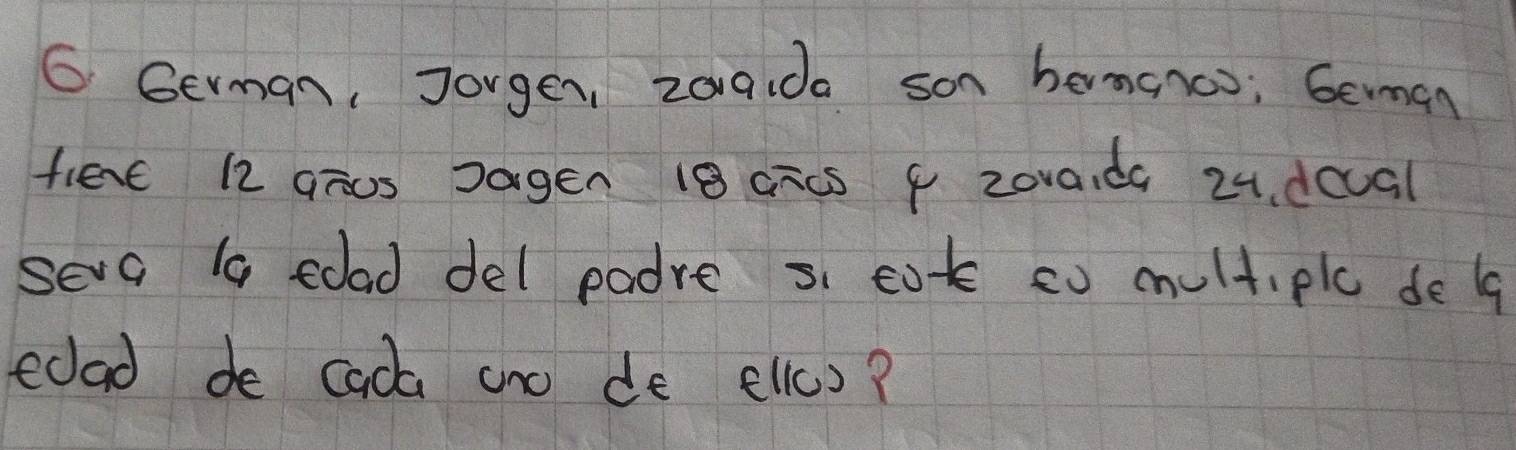 6. German, Jorgen, zoraida son hermanos; German
tiene 12 años Jorgen 18 años y zoraida 24. ¿cual
sera la edad del padre si este es multiplo de la
edad de cada uno de ellos?